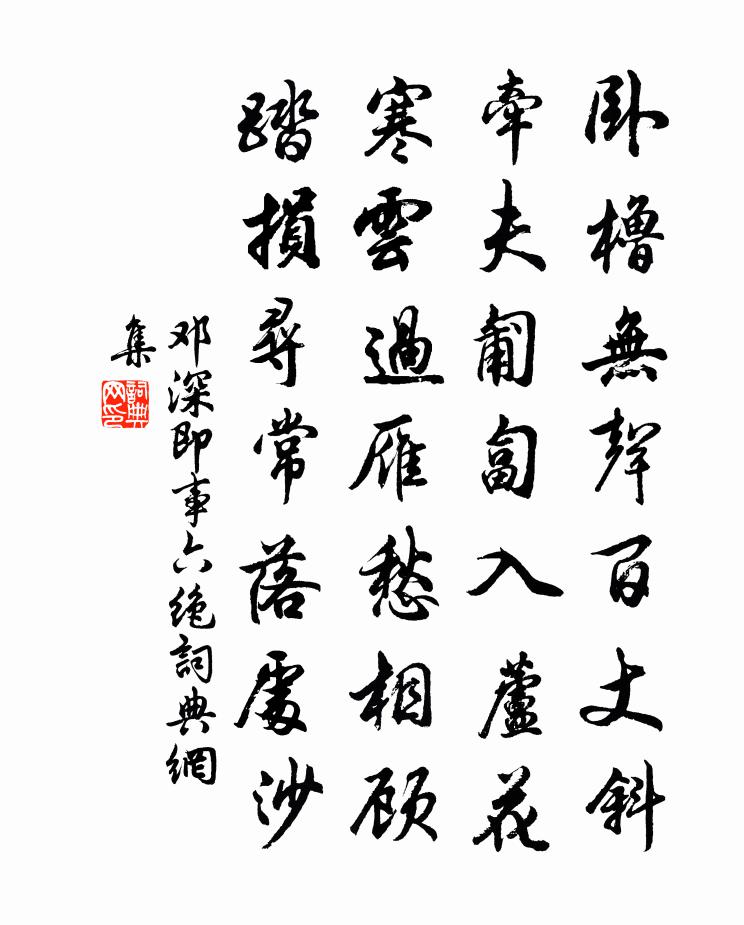 卧櫓無聲百丈斜
牽夫匍匐入蘆花
寒雲過雁愁相顧
踏損尋常落處沙
邓深即事六绝詞典網
集
詞典
网印